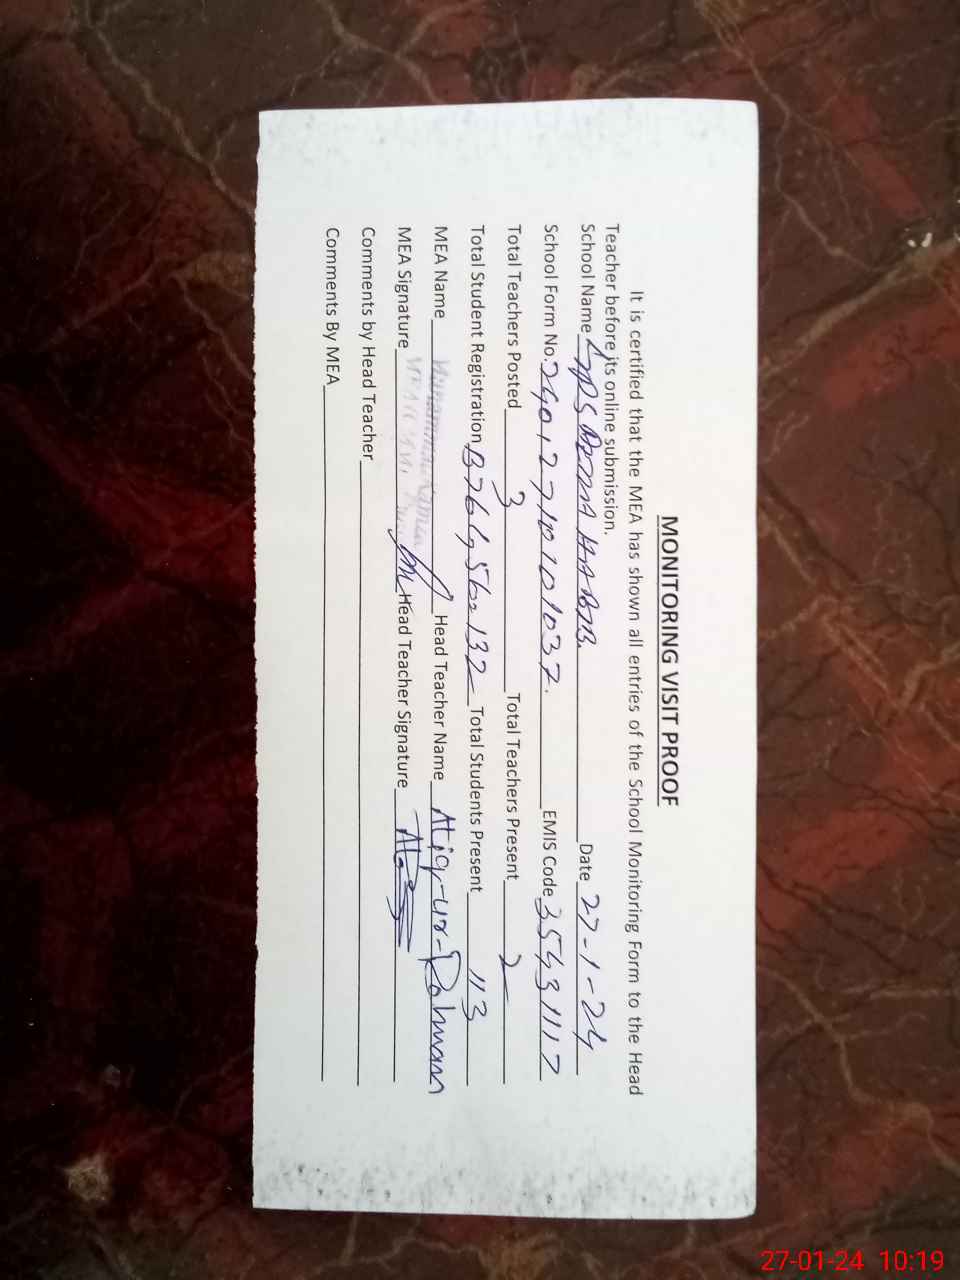 MONITORING VISIT PROOF
It is certified that the MEA has shown all entries of the School Monitoring Form to the Head
Teacher before its online submission.
School Name GPS Date 27-1-24
School Form No. EMIS Code 35431117
Total Teachers Posted 3 Total Teachers Present 2
Total Student Registration B76 G56=132 Total Students Present 113
MEA Name Muhammad Head Teacher Name Atiq-ur-Rahman
MEA Signature Head Teacher Signature
Comments by Head Teacher
Comments By MEA
27-01-24 10:19